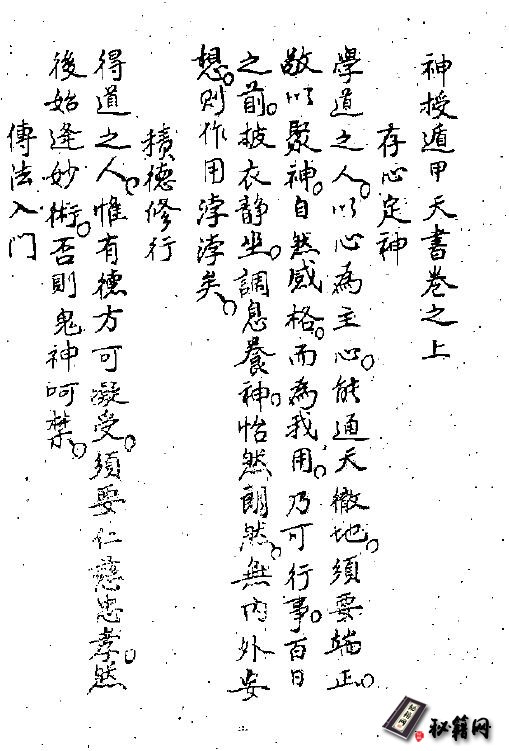 神授遁甲天書卷之上
存心定神
學道之人。以心為主心。能通天徹地。須要端正。
敬以聚神。自然感格。而為我用。乃可行事。百日
之前。披衣靜坐。調息養神。怡然朗然。無內外妄
想。則作用浡浡矣。
積德修行
得道之人。惟有德方可凝受。須要仁慈忠孝。然
後始逢妙術。否則鬼神呵禁。
傳法入门
秘籍网